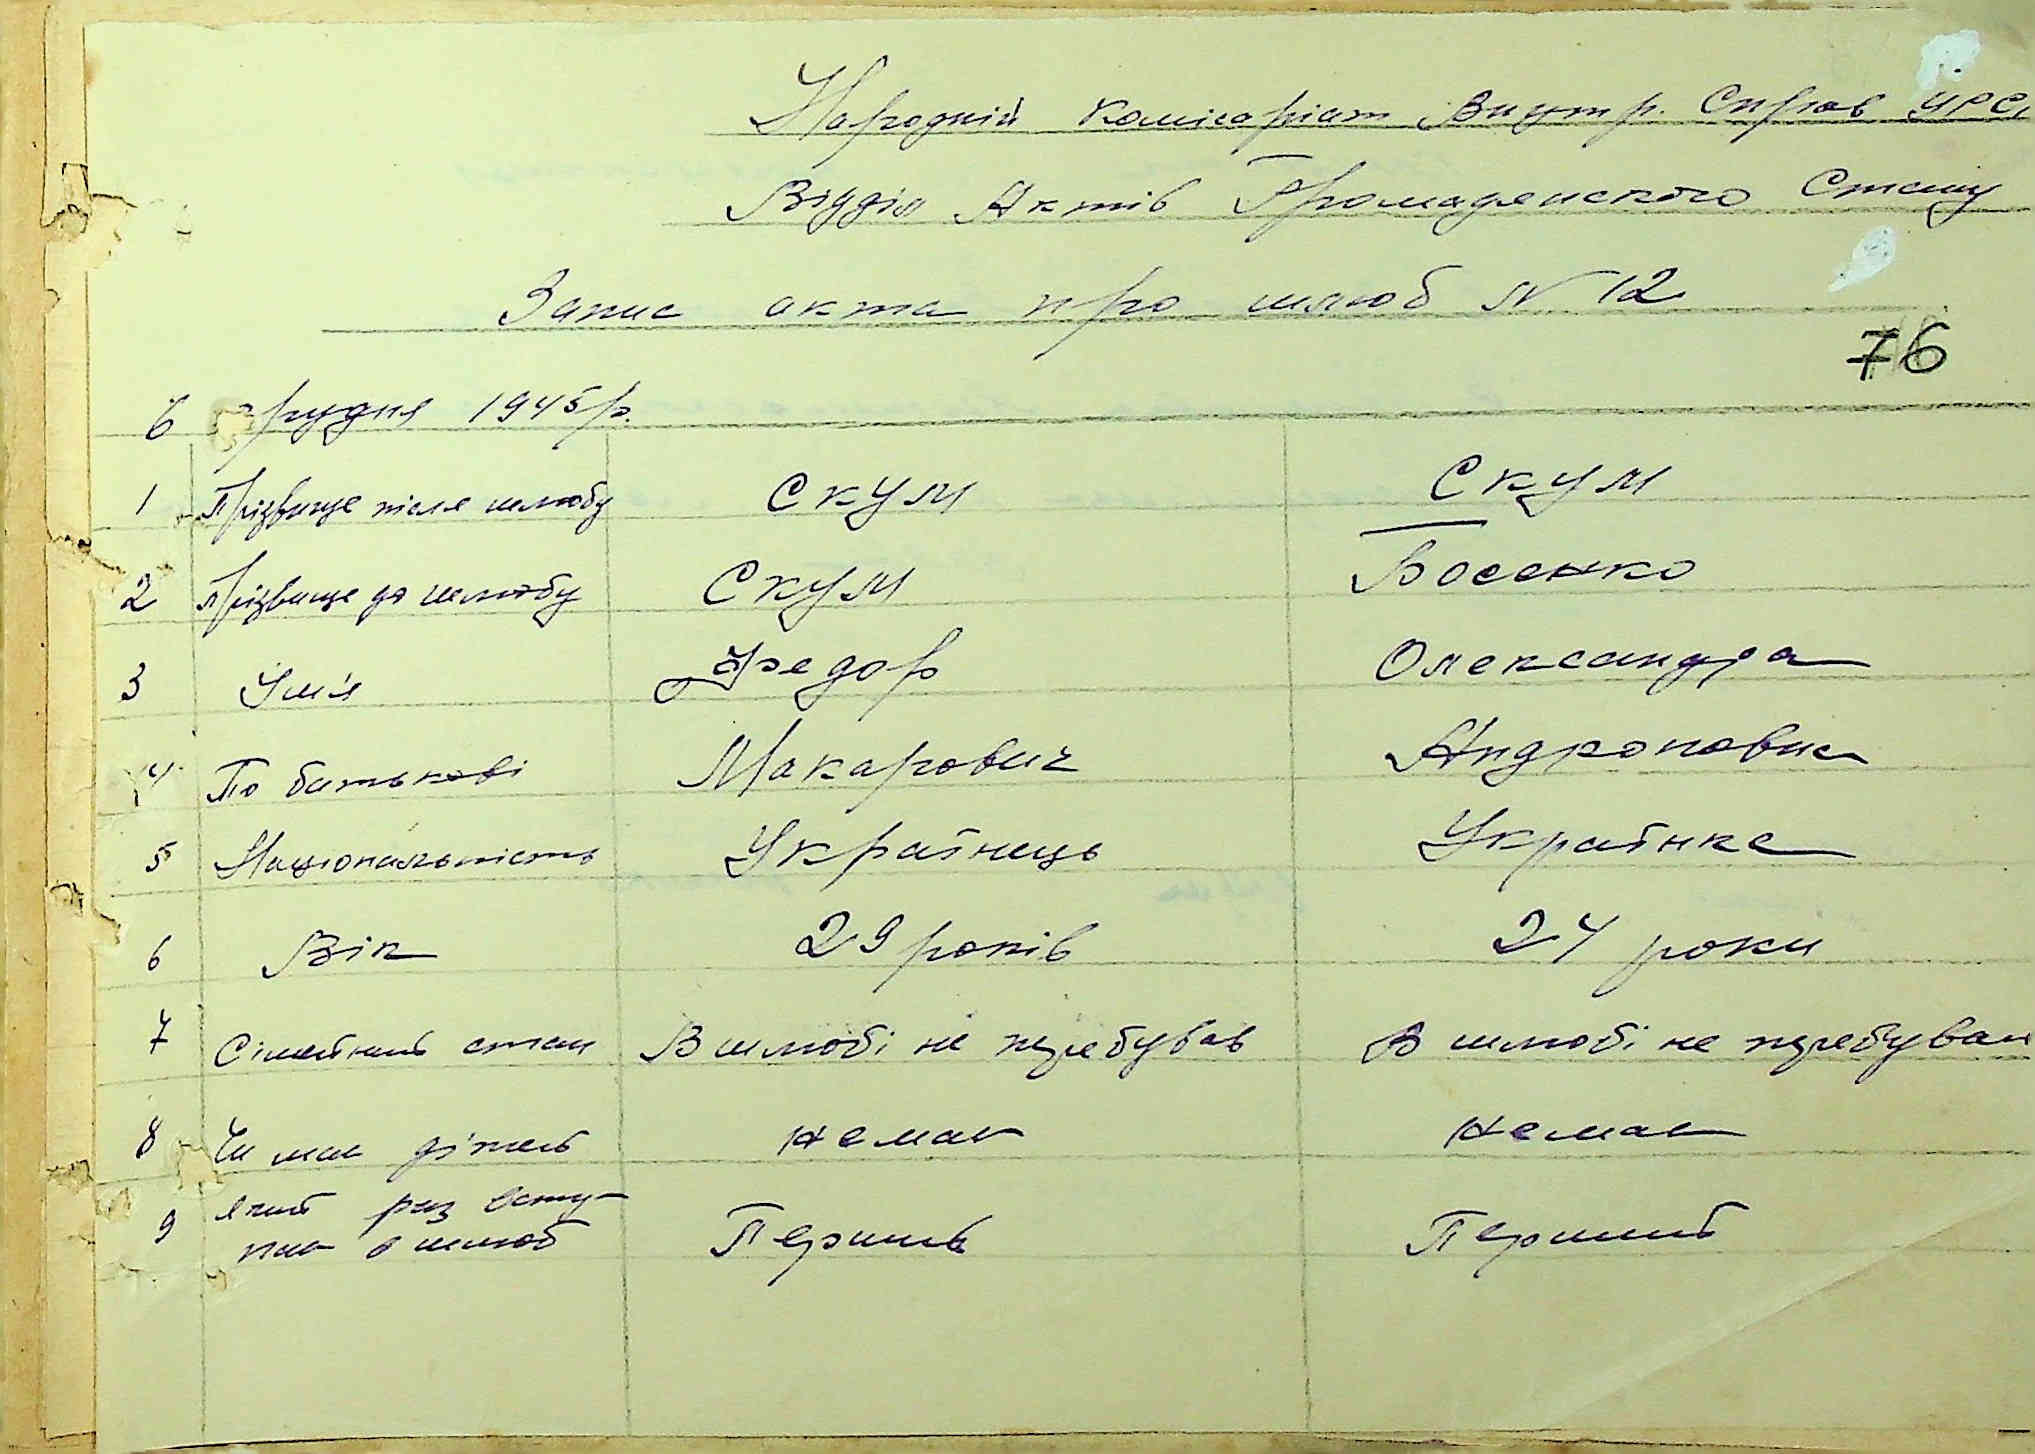 Народній Комісаріат Внутр. Справ УРСР
Відділ Актів Громадянського Стану
Запис акта про шлюб № 12
76
6 грудня 1945 р.
1 Прізвище після шлюбу Скум Скум
2 Прізвище до шлюбу Скум Босенко
3 Ім'я Федор Олександра
4 По батькові Макарович Андроповна
5 Національність Українець Українка
6 Вік 29 років 24 роки
7 Сімейний стан В шлюбі не перебував В шлюбі не перебувал
8 Чи має дітей немає немає
9 який раз всту-
пає в шлюб Перший Перший